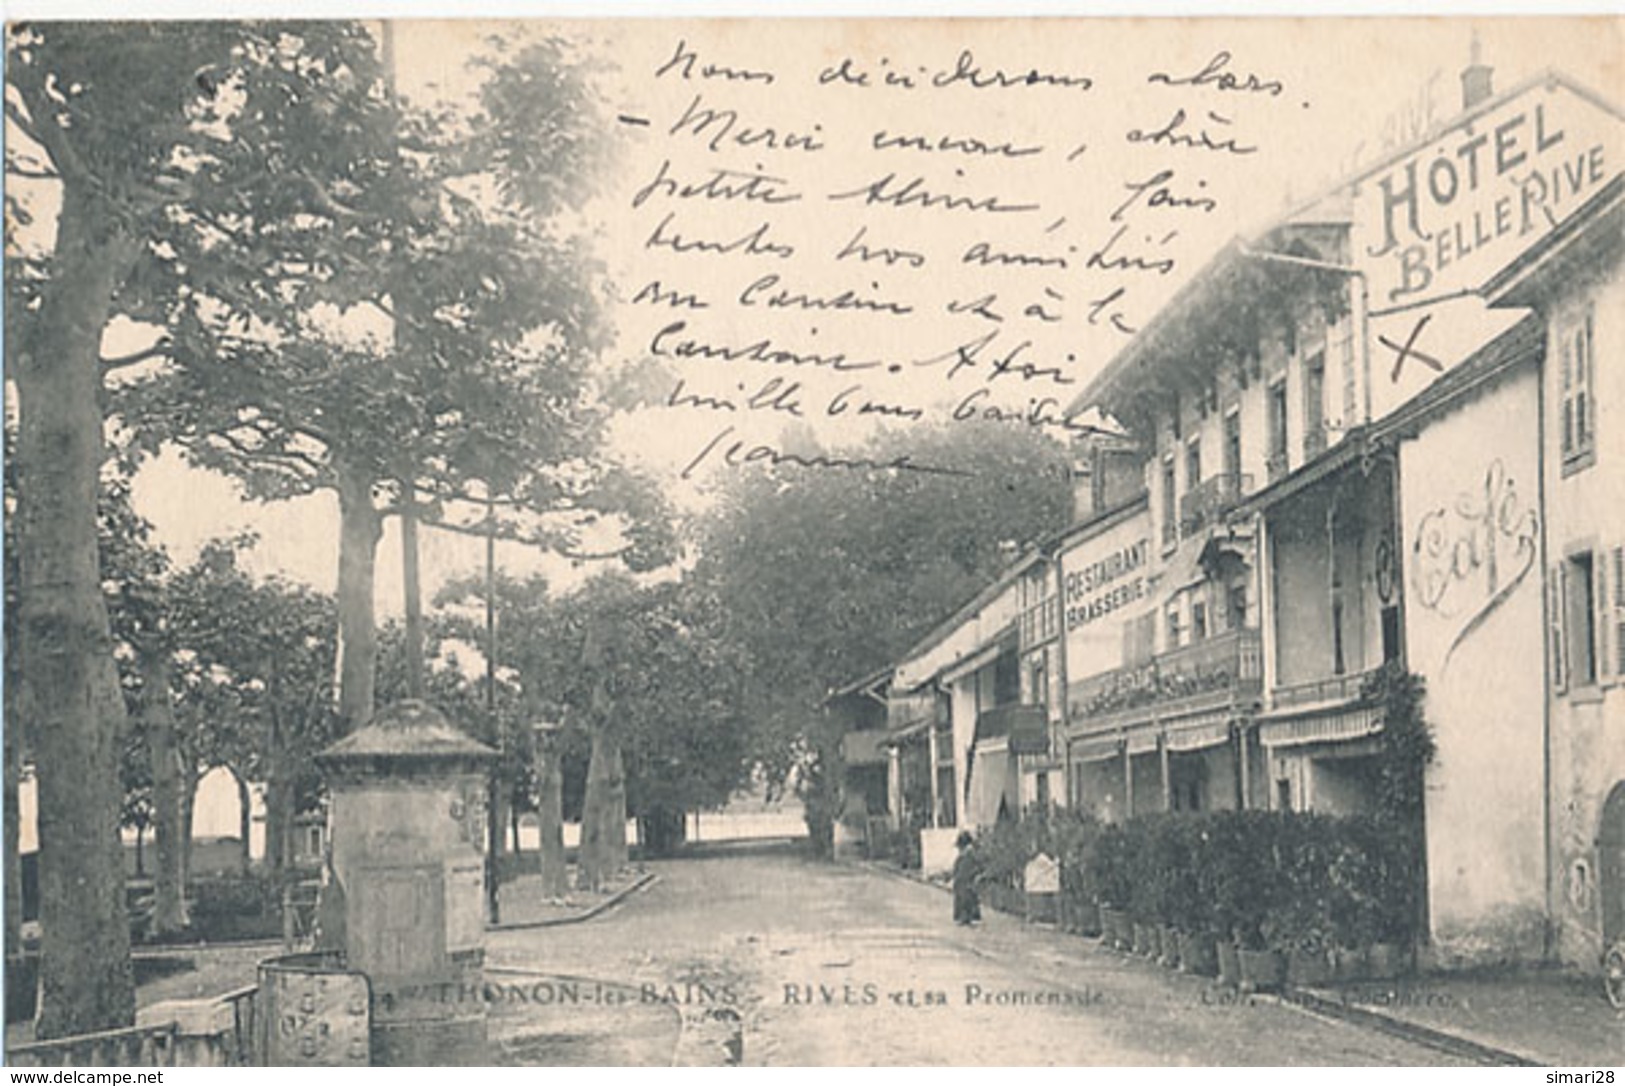 Nous déciderons alors.
- Merci encore, chère
petite Aline, fais
toutes nos amitiés
au Cousin et à la
Cousine. A toi
mille bons baisers
Jeanne
HÔTEL
BELLE RIVE
RESTAURANT
BRASSERIE
Café
THONON-les-BAINS - RIVES et sa Promenade
www.delcampe.net
simari28